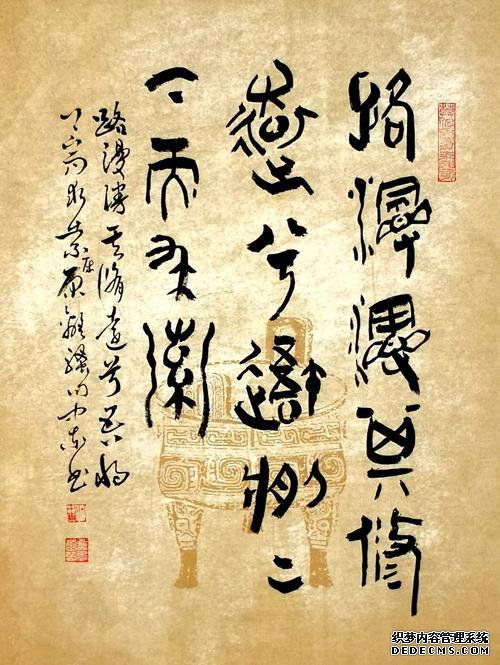 路漫漫其修
遠兮吾將上
下而求索
路漫漫其脩遠兮吾將
上下而求索屈原離騷句
织梦内容管理系统
DEDECMS.COM